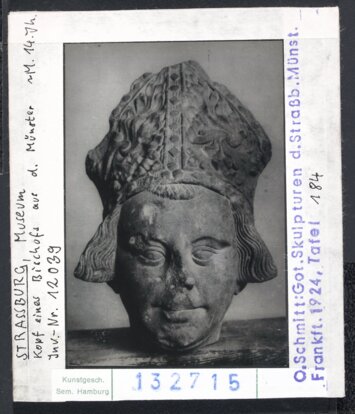 STRASSBURG, MUSEUM
Kopf eines Bischofs aus d. Münster M. 14. Jh.
Inv.-Nr. 12039
O. Schmitt: Got. Skulpturen d. Straßb. Münst.
Frankft. 1924, Tafel 184
Kunstgesch.
Sem. Hamburg
132715